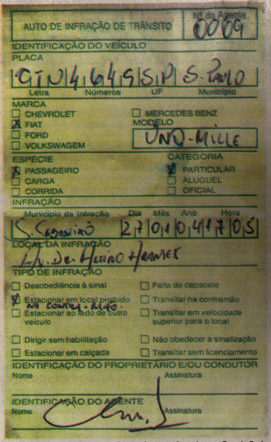 Nº do Agente
AUTO DE INFRAÇÃO DE TRÂNSITO 0069
IDENTIFICAÇÃO DO VEÍCULO
PLACA
4649 SP S. PAULO
Letra Números UF Município
MARCA
CHEVROLET MERCEDES BENZ
X FIAT MODELO
FORD UNO-MILLE
VOLKSWAGEM
ESPÉCIE CATEGORIA
X PASSAGEIRO X PARTICULAR
CARGA ALUGUEL
CORRIDA OFICIAL
INFRAÇÃO
Município da Infração Dia Mês Ano Hora
S. Sebastião
LOCAL DA INFRAÇÃO
TIPO DE INFRAÇÃO
Desobediência à sinal Falta de capacete
X Estacionar em local proibido Transitar na contramão
NA CONTRA-MÃO
Estacionar ao lado de outro veículo Transitar em velocidade superior para o local
Dirigir sem habilitação Não obedecer a sinalização
Estacionar em calçada Transitar sem licenciamento
IDENTIFICAÇÃO DO PROPRIETÁRIO E/OU CONDUTOR
Nome Assinatura
IDENTIFICAÇÃO DO AGENTE
Nome Assinatura